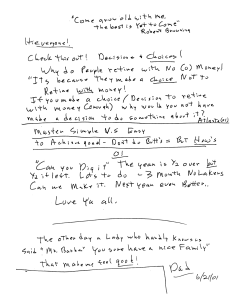 "Come grow old with me
The best is Yet to Come"
Robert Browning
Hi everyone!
Check this out! Decisions + Choices!
Why do People retire with No (0) Money!
"It's because They make a choice Not to
Retire with money!
If you make a choice / Decision to retire
with money (enough) why would you not have
make a decision to do something about it?
Master Simple V.S Easy
to Achieve goal - Don't do But's = But Now's
01
"Can you Dig it" The year is ½ over but
½ is left. Lots to do - 3 month No Lakers
Can we Make it. Next year even Better..
Love Ya all.
The other day a Lady who hardly knows us
Said "Mr. You sure have a nice Family"
that made me feel good!
Dad
6/21/01